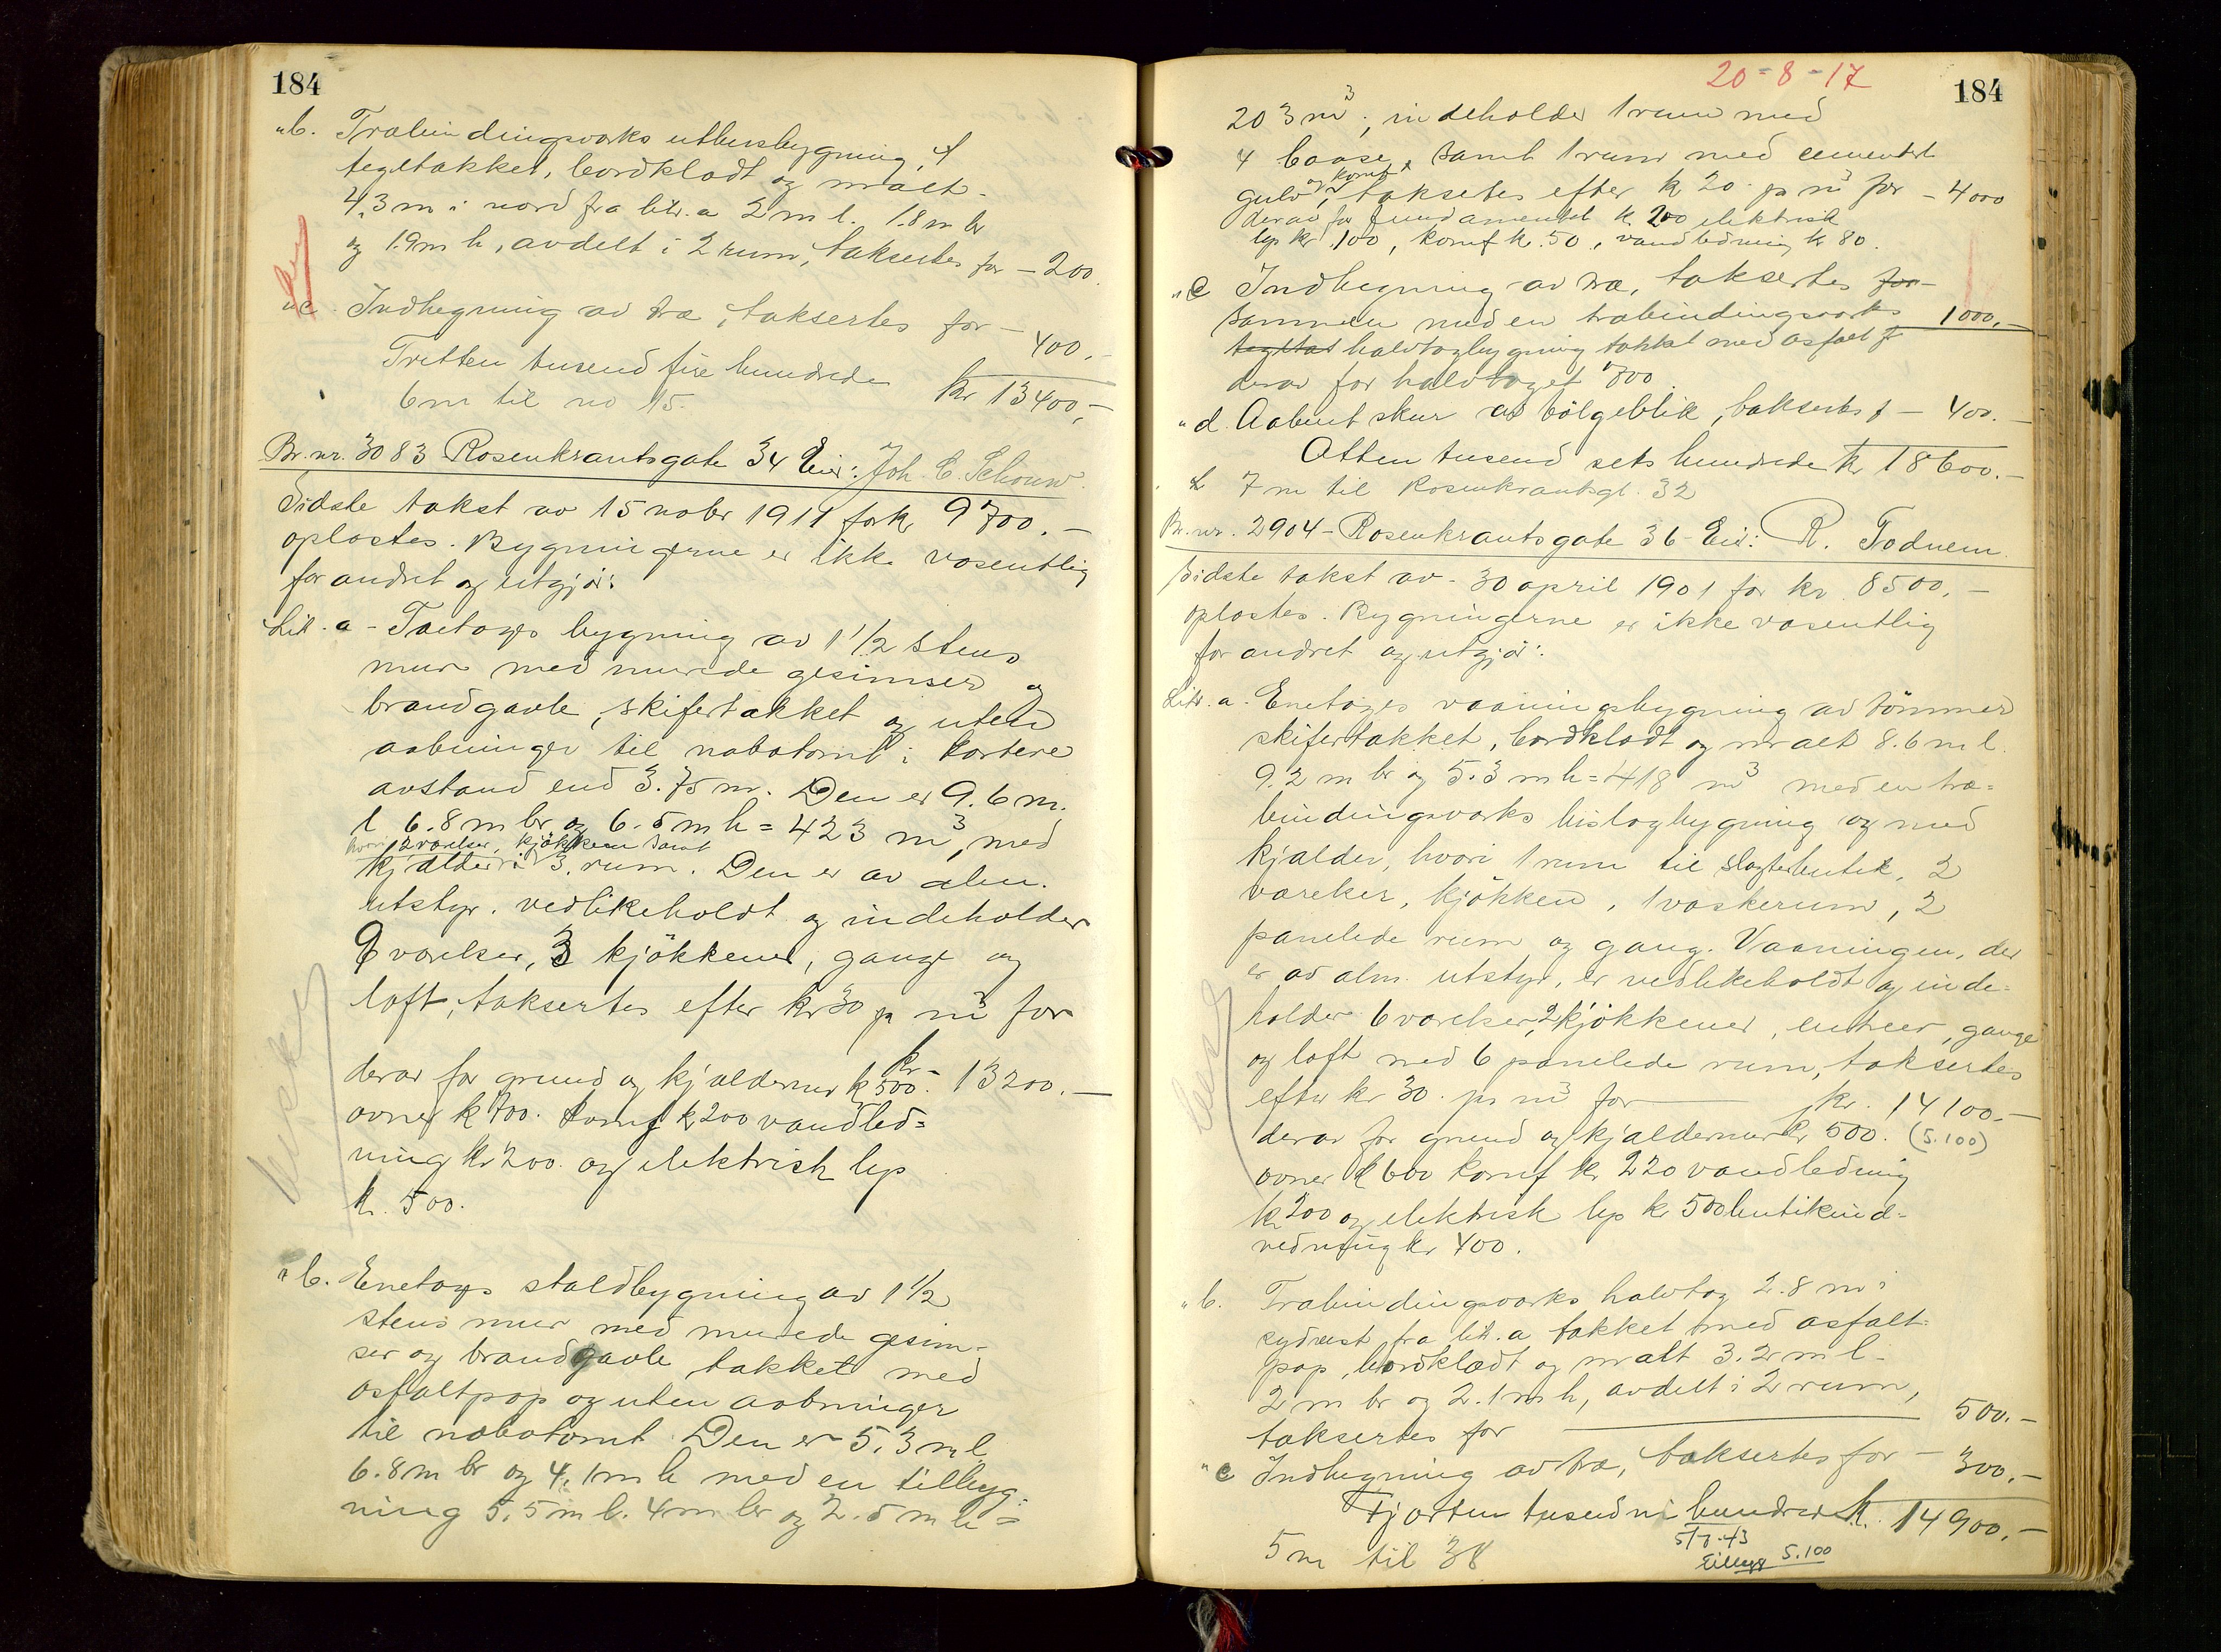 184
"b. Træbindingsværks uthusbygning,
tegltækket, bordklædt og malt
4.3 m i nord fra litr. a 2 m l. 1.8 m br
og 1.9 m h, avdelt i 2 rum, taksertes for - 200.
"c. Indhegning av træ, taksertes for - 400.-
Tretten tusend fire hundrede kr 13400,-
6 m til no 15.
Br. nr. 3083 Rosenkrantsgate 34 Eier: Joh. C. Schouw.
Sidste takst av 15 nobr 1911 for kr 9700.-
opløstes. Bygningerne er ikke væsentlig
forandret og utgjør:
Litr. a - Toetages bygning av 1 1/2 stens
mur med murede gesimser og
brandgavle, skifertækket og uten
aabninger til nabotomt i kortere
avstand end 3.75 m. Den er 9.6 m.
l 6.8 m br og 6.5 m h = 423 m3, med
hvori 2 værelser, kjøkken samt
kjælder i 3 rum. Den er av alm.
utstyr, vedlikeholdt og indeholder
9 værelser, 3 kjøkkener, gange og
loft, taksertes efter kr 30 pr m3 for
kr - 13200.-
derav for grund og kjældermur kr 500.
ovner kr 700. komf kr 200 vandled=
ning kr 200. og elektrisk lys
kr. 500.
"b. Enetages staldbygning av 1 1/2
stens mur med murede gesim-
ser og brandgavle tækket med
asfaltpap og uten aabninger
til nabotomt. Den er 5.3 m l
6.8 m br og 4.1 m h med en tilbyg=
ning 5.5 m l. 4 m br og 2.5 m h =
20-8-17
184
203 m3, indeholder 1 rum med
4 baase, samt 1 rum med cementert
og komf
gulv, taksertes efter kr 20 pr m3 for - 4000
derav for fundamentet kr 200 elektrisk
lys kr. 100, komf kr. 50, vandledning kr 80.
"c Indhegning av træ, taksertes for
sammen med en træbindingsværks 1000,-
tegltæk halvtagbygning tækket med asfalt f
derav for halvtaget 700
"d. Aabent skur av bølgeblik, taksertes f - 400.-
Atten tusend seks hundrede kr 18600.-
7 m til Rosenkrantsgt. 32
Br. nr. 2904 - Rosenkrantsgate 36 - Eier: R. Todnem.
Sidste takst av 30 april 1901 for kr. 8500,-
opløstes. Bygningerne er ikke væsentlig
forandret og utgjør:
Litr. a. Enetages vaaningsbygning av tømmer
skifertækket, bordklædt og malt 8.6 m l.
9.2 m br og 5.3 m h = 418 m3 med en træ=
bindingsværks bislagbygning og med
kjælder, hvori 1 rum til slagterbutik, 2
værelser, kjøkken, 1 vaskerum, 2
panelede rum og gang. Vaaningen, der
er av alm. utstyr, er vedlikeholdt og inde=
holder 6 værelser, 2 kjøkkener, entreer, gange
og loft med 6 panelede rum, taksertes
efter kr 30. pr m3 for kr. 14100.-
derav for grund og kjældermur kr 500. (5.100)
ovner kr 600 komf kr 220 vandledning
kr 200 og elektrisk lys kr 500 butikind=
redning kr 400.
"b. Træbindingsværks halvtag 2.8 m i
sydvest fra litr. a tækket med asfalt=
pap, bordklædt og malt 3.2 m l
2 m br og 2.1 m h, avdelt i 2 rum,
taksertes for 500.-
"c Indhegning av træ, taksertes for - 300.-
Fjorten tusend ni hundrede kr. 14900,-
5 m til 38
Tillegg 5.100